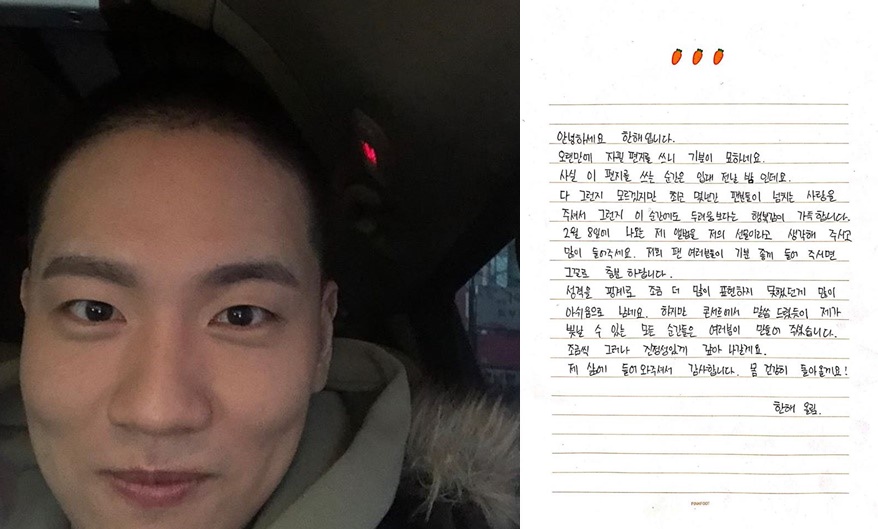 안녕하세요 한해입니다.
오랜만에 자필 편지를 쓰니 기분이 묘하네요.
사실 이 편지를 쓰는 순간은 입대 전날 밤 인데요.
다 그런지 모르겠지만 최근 몇년간 팬분들이 넘치는 사랑을
주셔서 그런지 이 순간에도 두려움보다는 행복감이 가득합니다.
2월 8일에 나오는 제 앨범을 저의 선물이라고 생각해 주시고
많이 들어주세요. 저희 팬 여러분들이 기분 좋게 들어 주시면
그걸로 충분 하답니다.
성격을 핑계로 조금 더 많이 표현하지 못했던게 많이
아쉬움으로 남네요. 하지만 콘서트에서 말씀 드렸듯이 제가
빛날 수 있는 모든 순간들은 여러분이 만들어 주셨습니다.
조금씩 그러나 진정성있게 갚아 나갈게요.
제 삶에 들어 와주셔서 감사합니다. 몸 건강히 돌아올게요!
한해 올림.